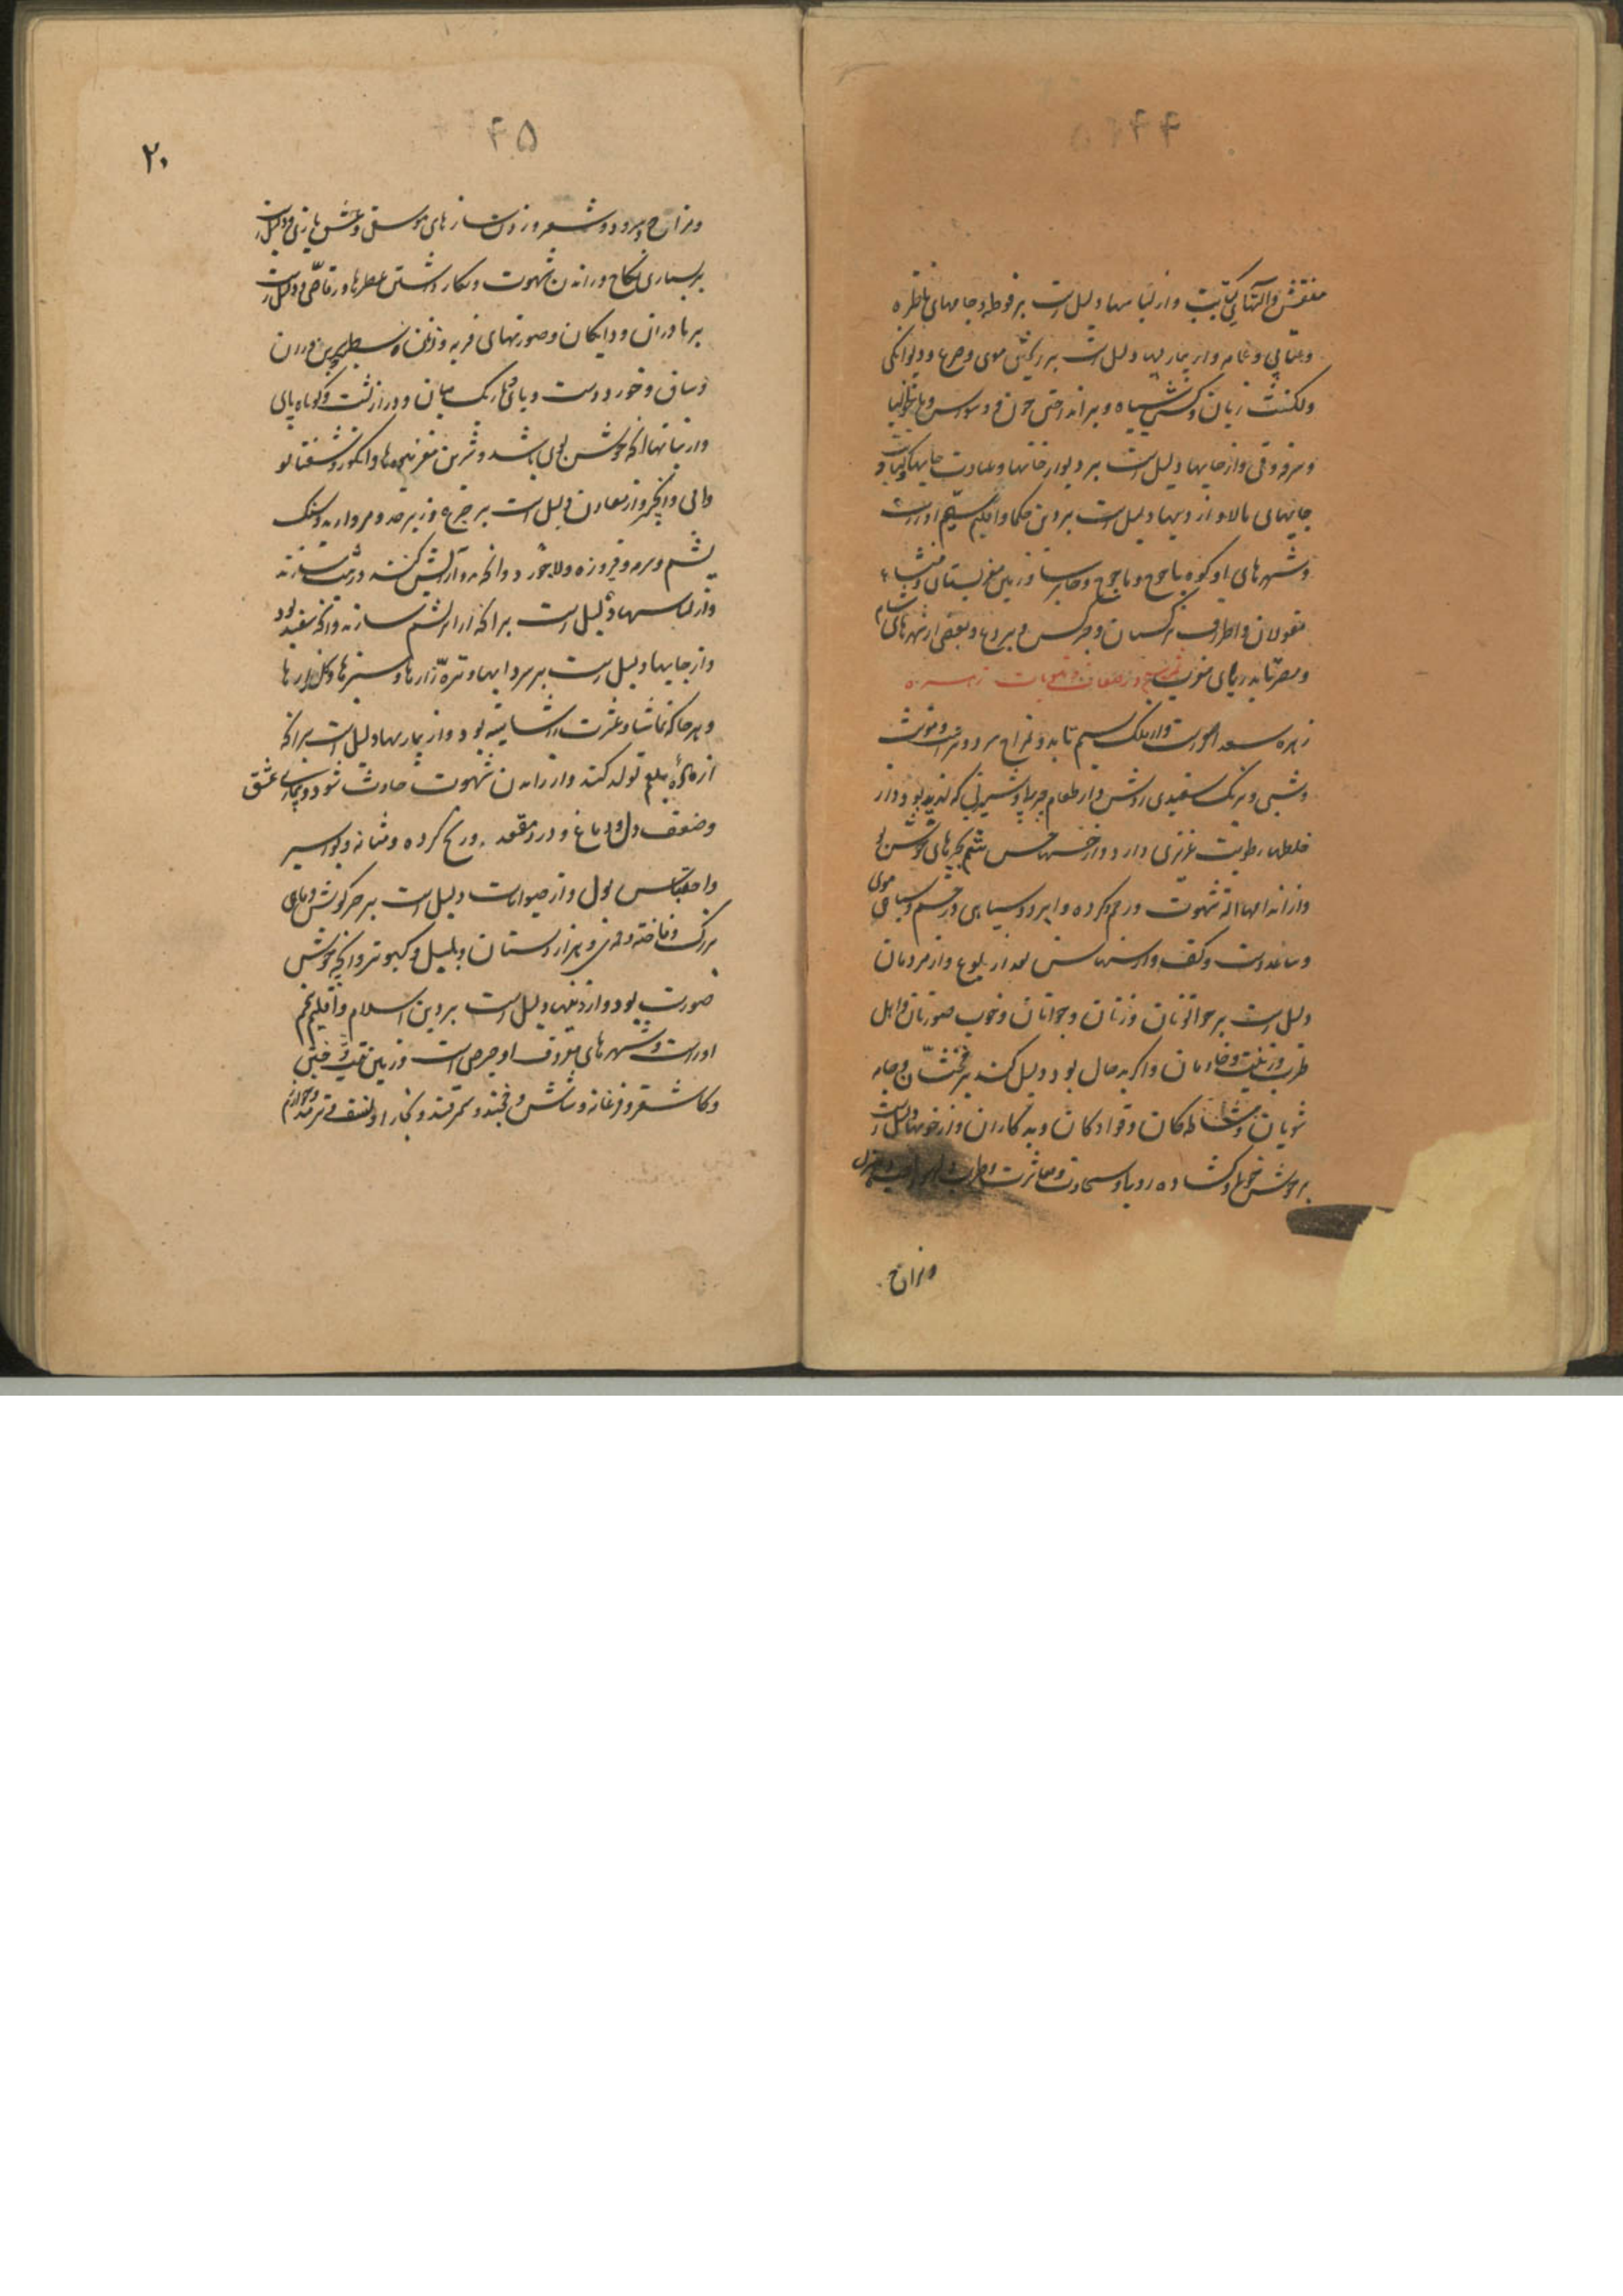 ۴۴
منقش و آلتهای کتابت و از لباسها دلیل است بر فوطه و جامهای
و عتابی و عمامه و از بیماریها دلیل است بر ریختن موی و صرع و دیوانگی
و لکنت زبان و سیاه و بر انداختن خون و وسواس و مالیخولیا
و سرفه و قی و از جایها دلیل است بر دیوار خانها و عبادت جایها و
جایهای بالا و از دینها دلیل است بر دین حکما و اقلیم ششم او راست
و شهرهای او کوه یاجوج و ماجوج و جابرسا و زمین مغولستان و
مغولان و اطراف ترکستان و چرکس و بردع و بعضی از شهرهای شام
و مصر تا بدریای مغرب در صفات و منسوبات زهره
زهره سعد اصغر است و از فلک سیم تابد و مزاج سرد و تر است و مونث
و شبی و برنگ سفیدی روشن و از طعام چرب و شیرینی که لذیذ بود و از
خلطها رطوبت غریزی دارد و از حسها حس شم چیزهای خوش بو
و از اندامها آلت شهوت و رحم و کرده و ابرو و سیاهی چشم و سیاهی موی
و ساعد دست و کف و از سنها سن بعد از بلوغ و از مردمان
دلیل است بر خواتونان و زنان و جوانان و خوب صورتان و اهل
طرب و زینت و خادمان و اگر بد حال بود دلیل کند بر مخنثان و جامه
شویان و مشاطه‌گان و قوادگان و بدکاران و از خویها دلیل است
بر خوش خویی و گشاده رویی و سخاوت و معاشرت و طرب و
و مزاح
۴۵
۲۰
و مزاح و سرود و شعر و زدن سازهای موسیقی و عشق بازی و دلیل است
بر بسیاری نکاح و راندن شهوت و بکار داشتن عطرها و رقاصی و دلیل است
بر مادران و دایگان و صورتهای فربه و سطبر بن ران
و ساق و خورد دست و پای و باریک میان و دراز پشت و کوتاه پای
و از نباتها آنکه خوش بوی باشد و شرین مغز میوه‌ها و انگور و شفتالو
و انجیر و از معادن دلیل است بر جزع و زبرجد و مروارید و سنگ
یشم و سرمه و فیروزه و لاجورد و آنچه بدو آرایش کنند و زینت سازند
و از لباسها دلیل است بر آنکه از ابریشم سازند و آنچه سفید بود
و از جایها دلیل است بر سردابها و تره‌زارها و سبزها و گلزارها
و هر جا که تماشا و عشرت را شایسته بود و از بیماریها دلیل است بر آنکه
از ماده بلغم تولد کند و از راندن شهوت حادث شود و بیماری عشق
و ضعف دل و دماغ و درد مقعد و رنج کرده و مثانه و بواسیر
و احتباس بول و از حیوانات دلیل است بر خرگوش و ماهی
بزرگ و فاخته و قمری و هزار دستان و بلبل و کبوتر و آنچه خوش
صورت بود و از دینها دلیل است بر دین اسلام و اقلیم پنجم
او راست و شهرهای معروف او و زمین
و کاشغر و فرغانه و شاش و خجند و سمرقند و بخارا و نسف و ترمذ و خوارزم